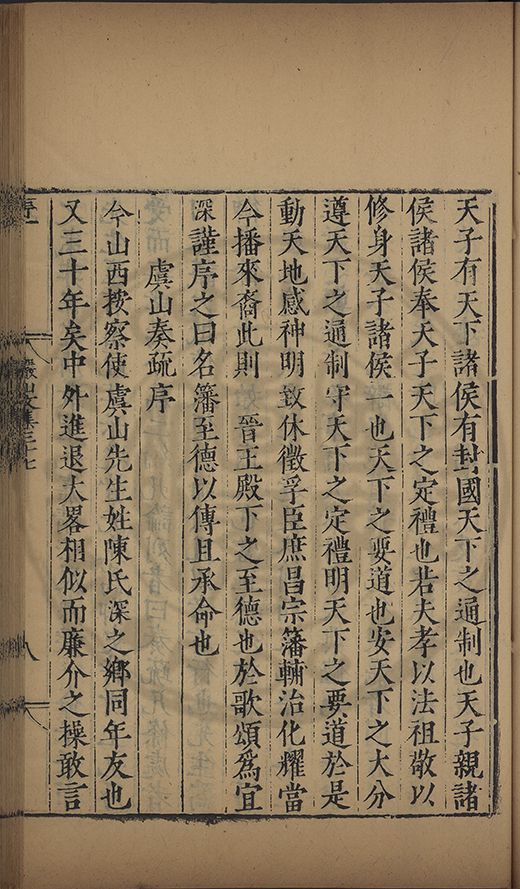 天子有天下諸侯有封國天下之通制也天子親諸
侯諸侯奉天子天下之定禮也若夫孝以法祖敬以
修身天子諸侯一也天下之要道也安天下之大分
遵天下之通制守天下之定禮明天下之要道於是
動天地感神明致休徵孚臣庶昌宗藩輔治化耀當
今播來裔此則　晉王殿下之至德也於歌頌爲宜
深謹序之曰名藩至德以傳且承命也
虞山奏疏序
今山西按察使虞山先生姓陳氏深之鄉同年友也
又三十年矣中外進退大畧相似而廉介之操敢言